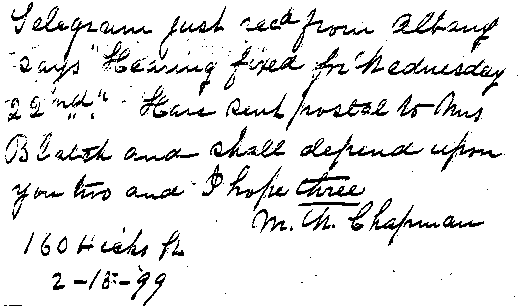 Telegram just recd from Albany
says "Hearing fixed for Wednesday
22nd." Have sent postal to Mrs
Blatch and shall depend upon
you two and I hope three
M. M. Chapman
160 Hicks St
2-18-99